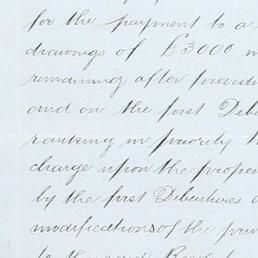 for the payment to a
drawings of £3000
remaining after
and on the first
ranking in priority
charge upon the
by the first Debentures
modifications of the